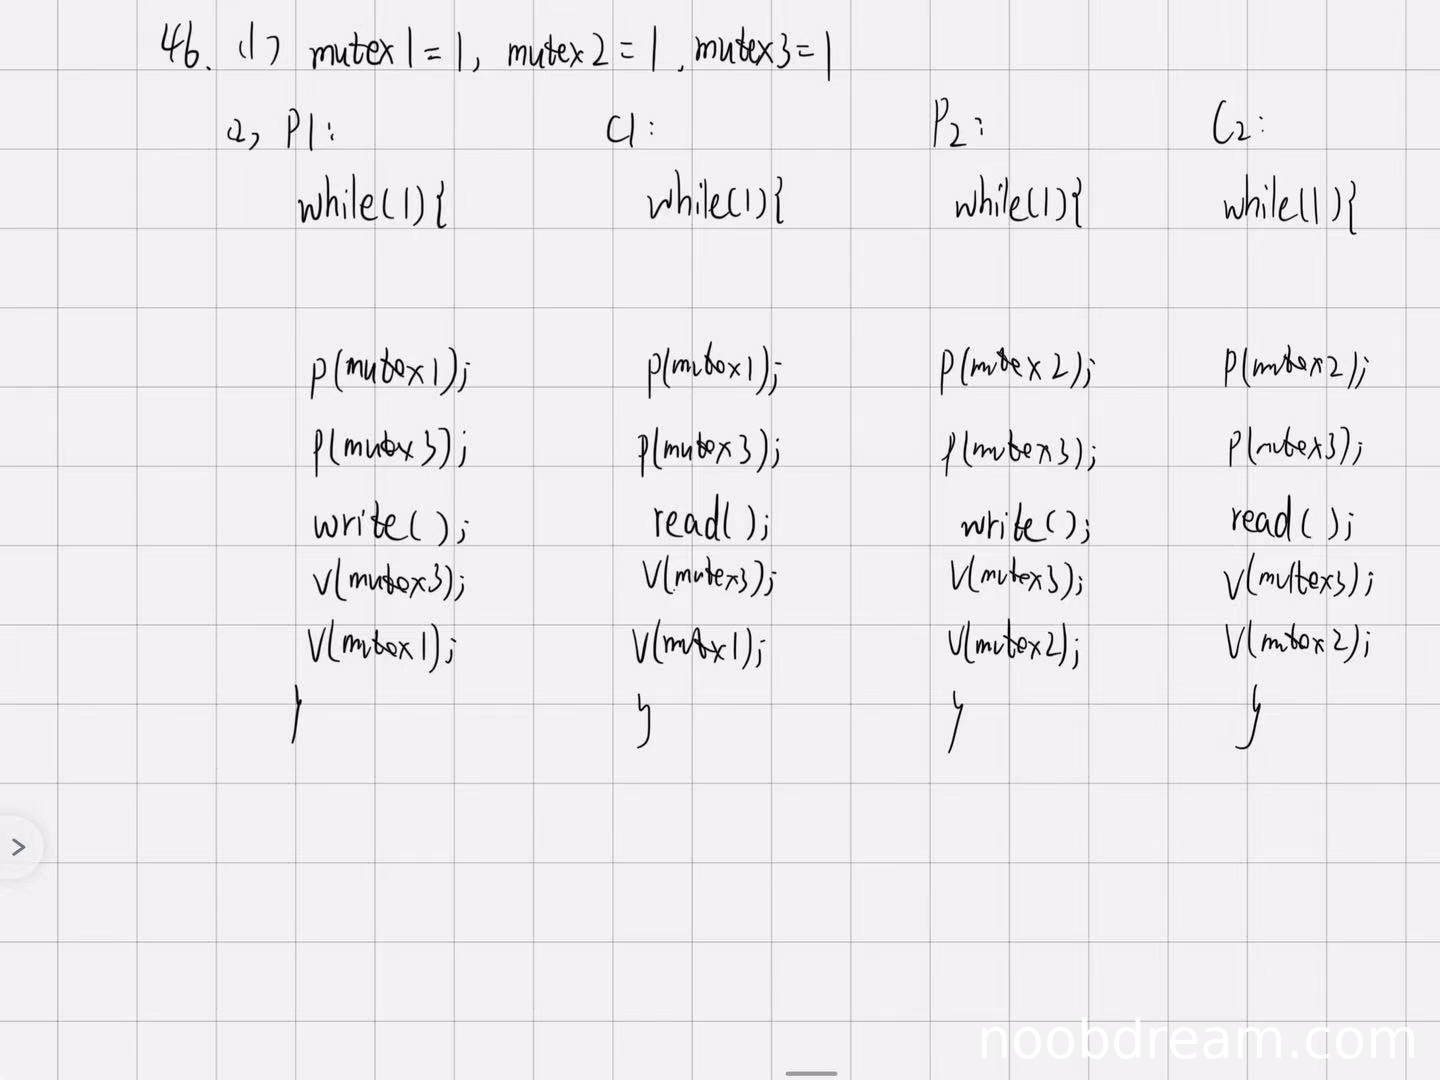 46. (1) mutex1=1, mutex2=1, mutex3=1
2) P1: C1: P2: C2:
while(1){ while(1){ while(1){ while(1){
p(mutex1); p(mutex1); p(mutex2); p(mutex2);
p(mutex3); p(mutex3); p(mutex3); p(mutex3);
write(); read(); write(); read();
v(mutex3); v(mutex3); v(mutex3); v(mutex3);
v(mutex1); v(mutex1); v(mutex2); v(mutex2);
} } } }
noobdream.com